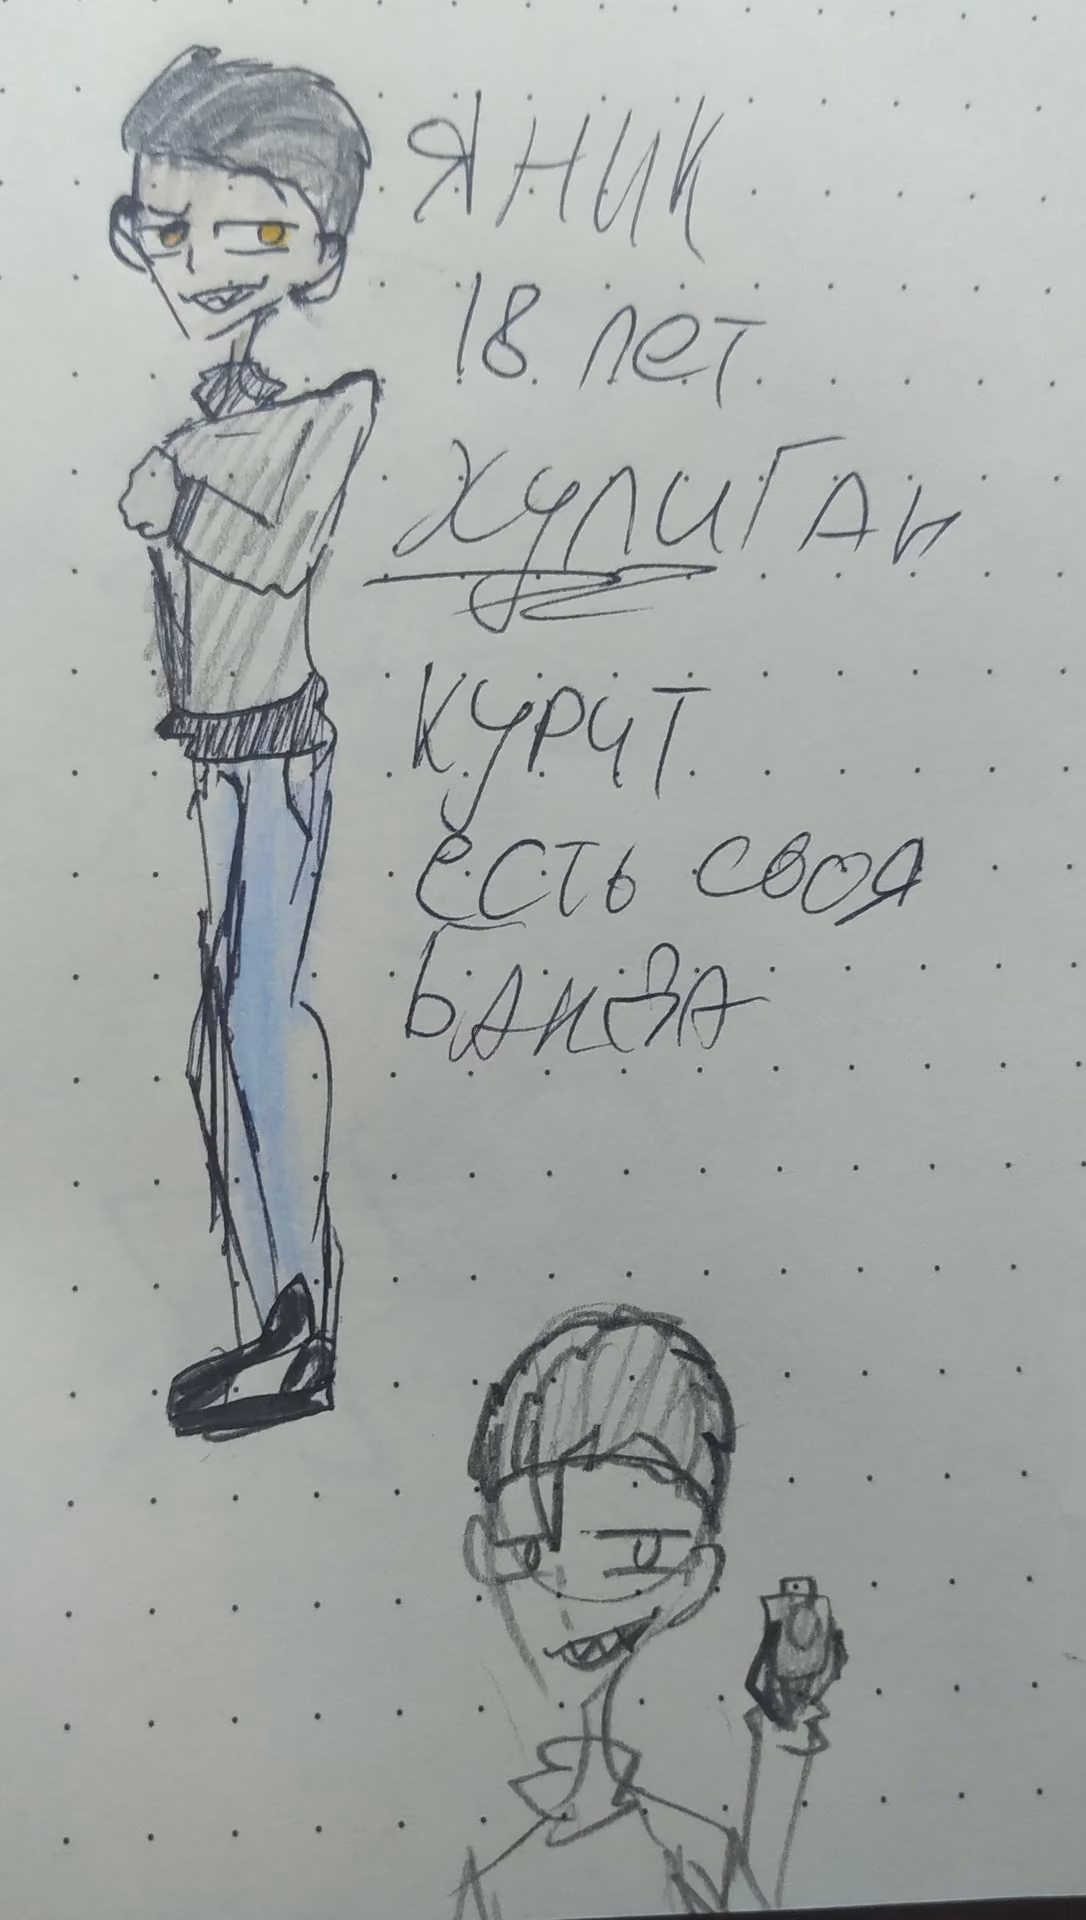 ЯНИК
18 лет
ХУЛИГАН
КУРИТ
ЕСТЬ СВОЯ
БАНДА